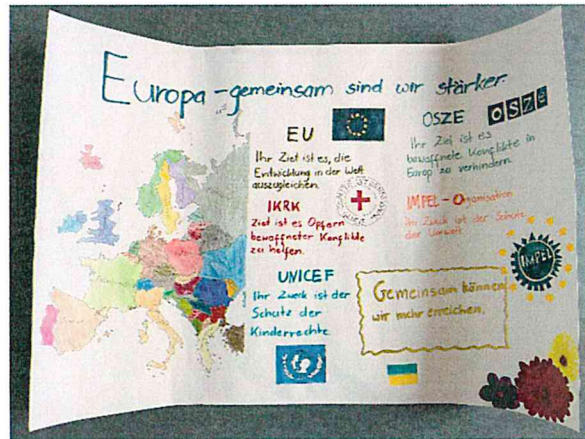 Europa - gemeinsam sind wir stärker
EU
Ihr Ziel ist es, die
Entwicklung in der Welt
auszugleichen.
IKRK
Ziel ist es Opfern
bewaffneter Konflikte
zu helfen.
UNICEF
Ihr Zweck ist der
Schutz der
Kinderrechte
OSZE
osze
Ihr Ziel ist es
bewaffnete Konflikte in
Europ zu verhindern.
IMPEL - Organisation
Ihr Zweck ist der Schutz
der Umwelt
IMPEL
Gemeinsam können
wir mehr erreichen.